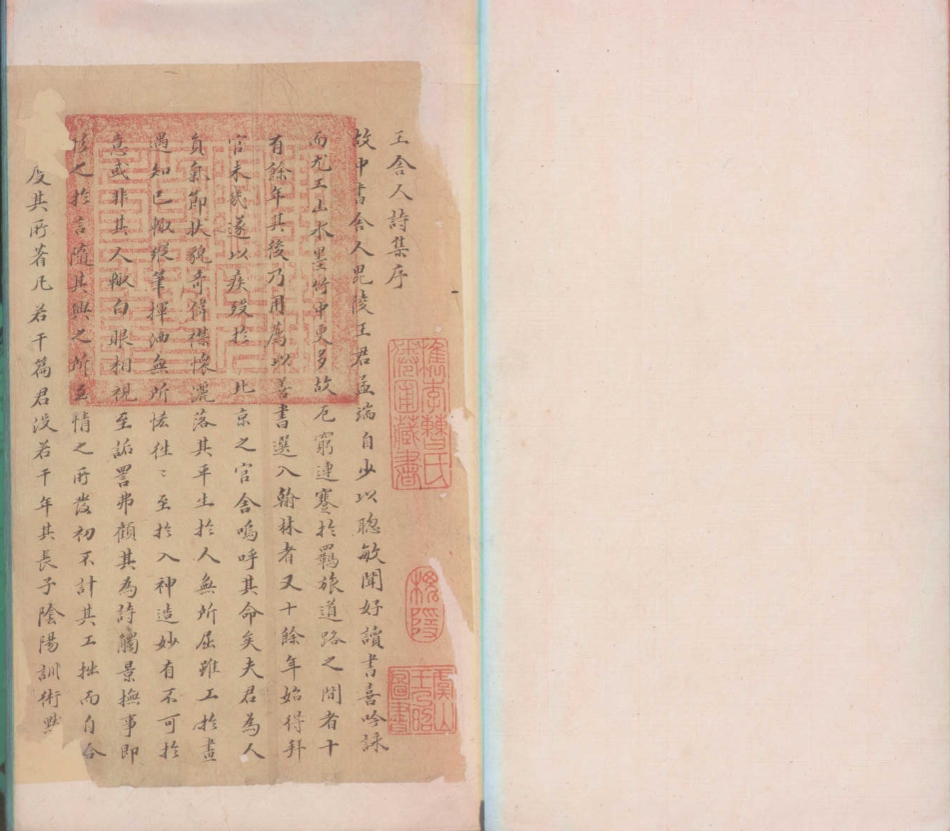 王舍人詩集序
故中書舍人毘陵王君孟端自少以聰敏聞好讀書喜吟詠
而尤工山水墨竹中更多故厄窮連蹇於羈旅道路之間者十
有餘年其後乃用薦以善書選入翰林者又十餘年始得拜
官未幾遂以疾歿於北京之官舍嗚呼其命矣夫君為人
負氣節狀貌奇偉襟懷灑落其平生於人無所屈雖工於畫
遇知己輒縱筆揮洒無所恡往〻至於入神造妙有不可於
意或非其人輒白眼相視至詬詈弗顧其為詩觸景撫事即
之於言隨其興之所至情之所發初不計其工拙而自合
及其所著凡若干篇君沒若干年其長子陰陽訓術默
檇李曹氏
藏書
槐隱
虞山
圖書